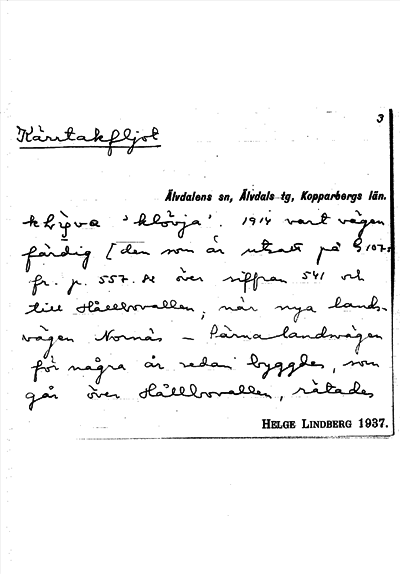 3
Kärrtakfljot
Älvdalens sn, Älvdals tg, Kopparbergs län.
'klövja'. 1914 vart vägen
färdig [den som är utsatt på G 107s
fr. p. 557. N över siffran 541 och
till Hållbovallen, när nya lands-
vägen Nornäs – Särnalandsvägen
för några år sedan byggdes, som
går över Hållbovallen, rätades
HELGE LINDBERG 1937.